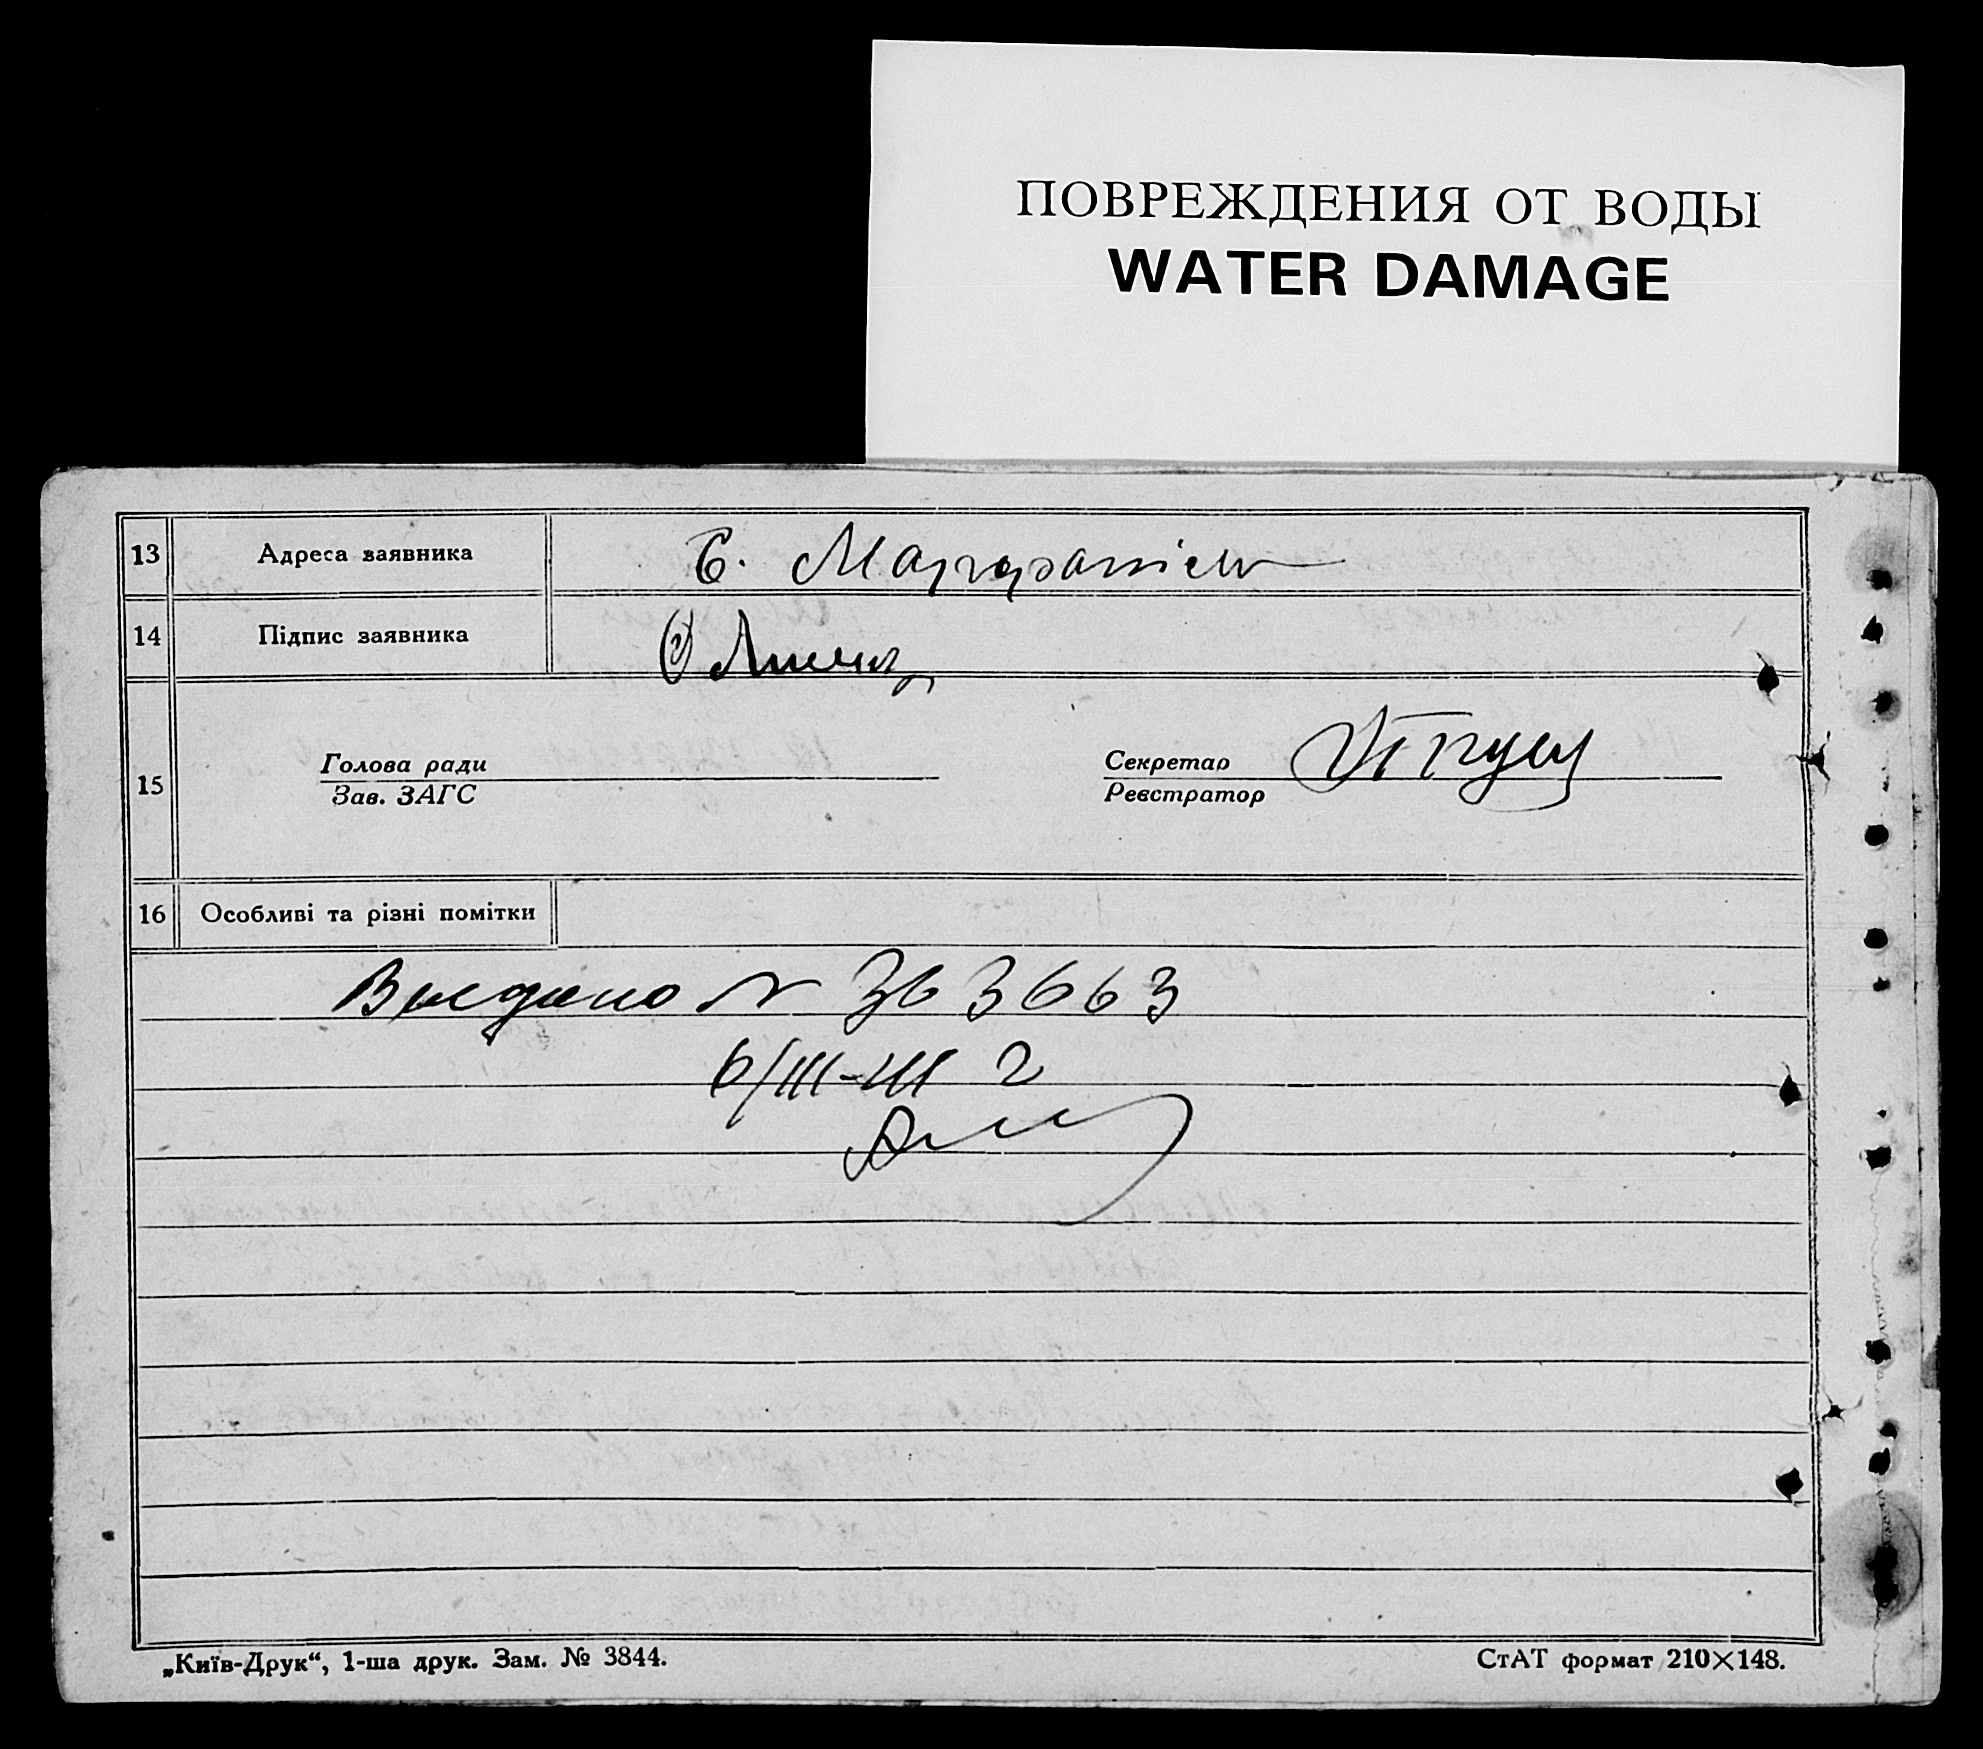 ПОВРЕЖДЕНИЯ ОТ ВОДЫ
WATER DAMAGE
13 Адреса заявника С.
14 Підпис заявника
15 Голова ради Секретар
Зав. ЗАГС Реєстратор
16 Особливі та різні помітки
Выдано N 363663
6/III-
„Київ-Друк“, 1-ша друк. Зам. № 3844. СтАТ формат 210×148.